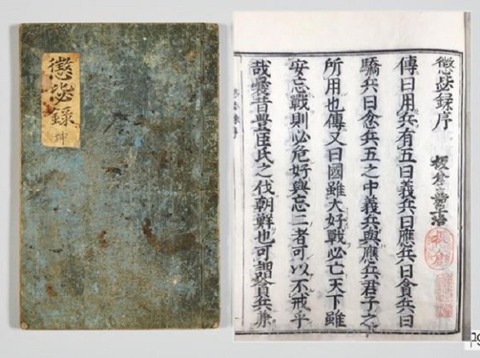 懲毖録
懲毖錄序
傳曰用兵有五曰義兵曰應兵曰貪兵曰
驕兵曰忿兵五之中義兵與應兵君子之
所用也傳又曰國雖大好戰必亡天下雖
安忘戰則必危好與忘二者可以不戒乎
哉曩昔豊臣氏之伐朝鮮也可謂貪兵兼